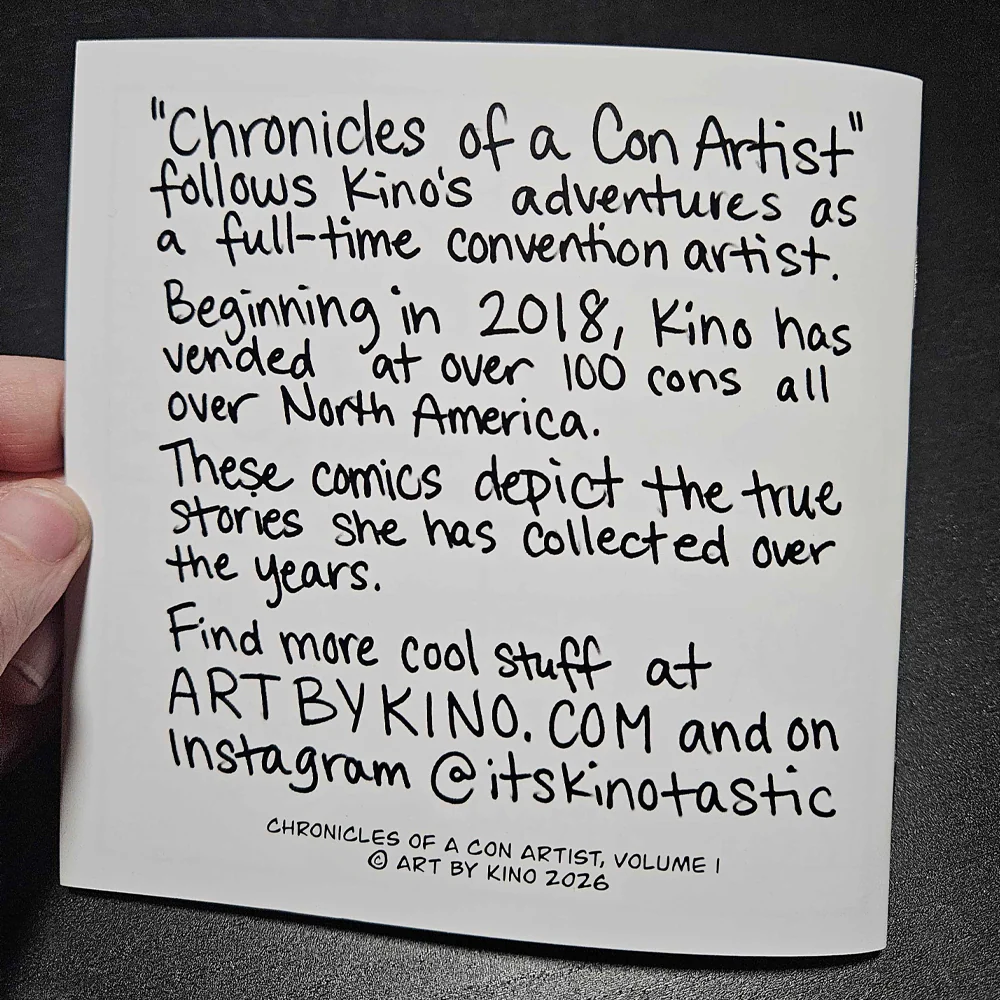 "Chronicles of a Con Artist"
follows Kino's adventures as
a full-time convention artist.
Beginning in 2018, Kino has
vended at over 100 cons all
over North America.
These comics depict the true
stories she has collected over
the years.
Find more cool stuff at
ARTBYKINO.COM and on
Instagram @itskinotastic
CHRONICLES OF A CON ARTIST, VOLUME I
© ART BY KINO 2026